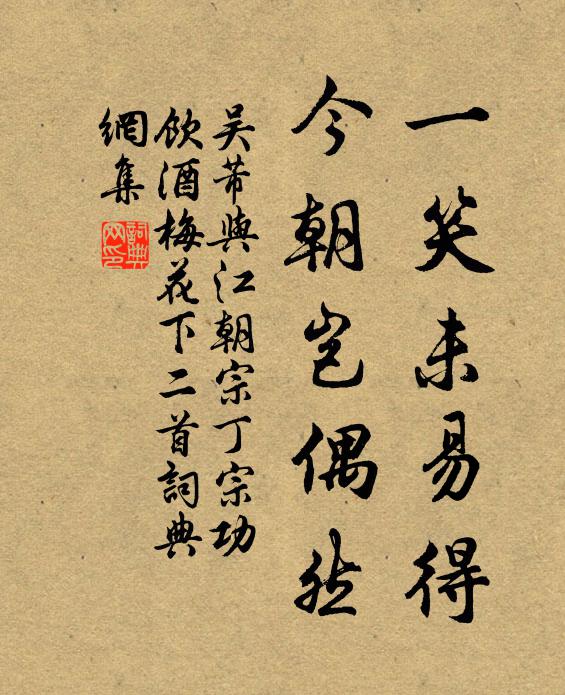 一笑未易得
今朝豈偶然
吴芾與江朝宗丁宗功
飲酒梅花下二首詞典
網集
詞典
网印